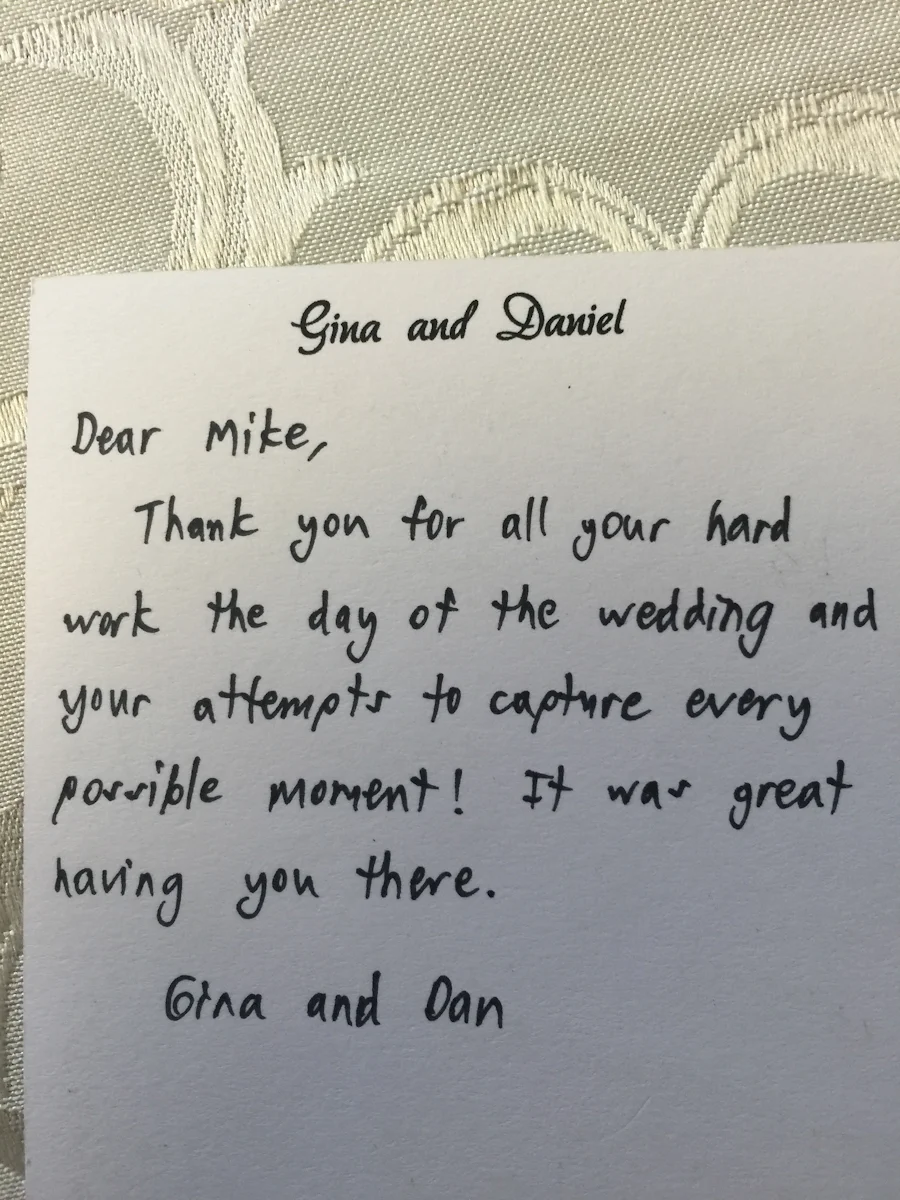 Gina and Daniel
Dear Mike,
Thank you for all your hard
work the day of the wedding and
your attempts to capture every
possible moment! It was great
having you there.
Gina and Dan